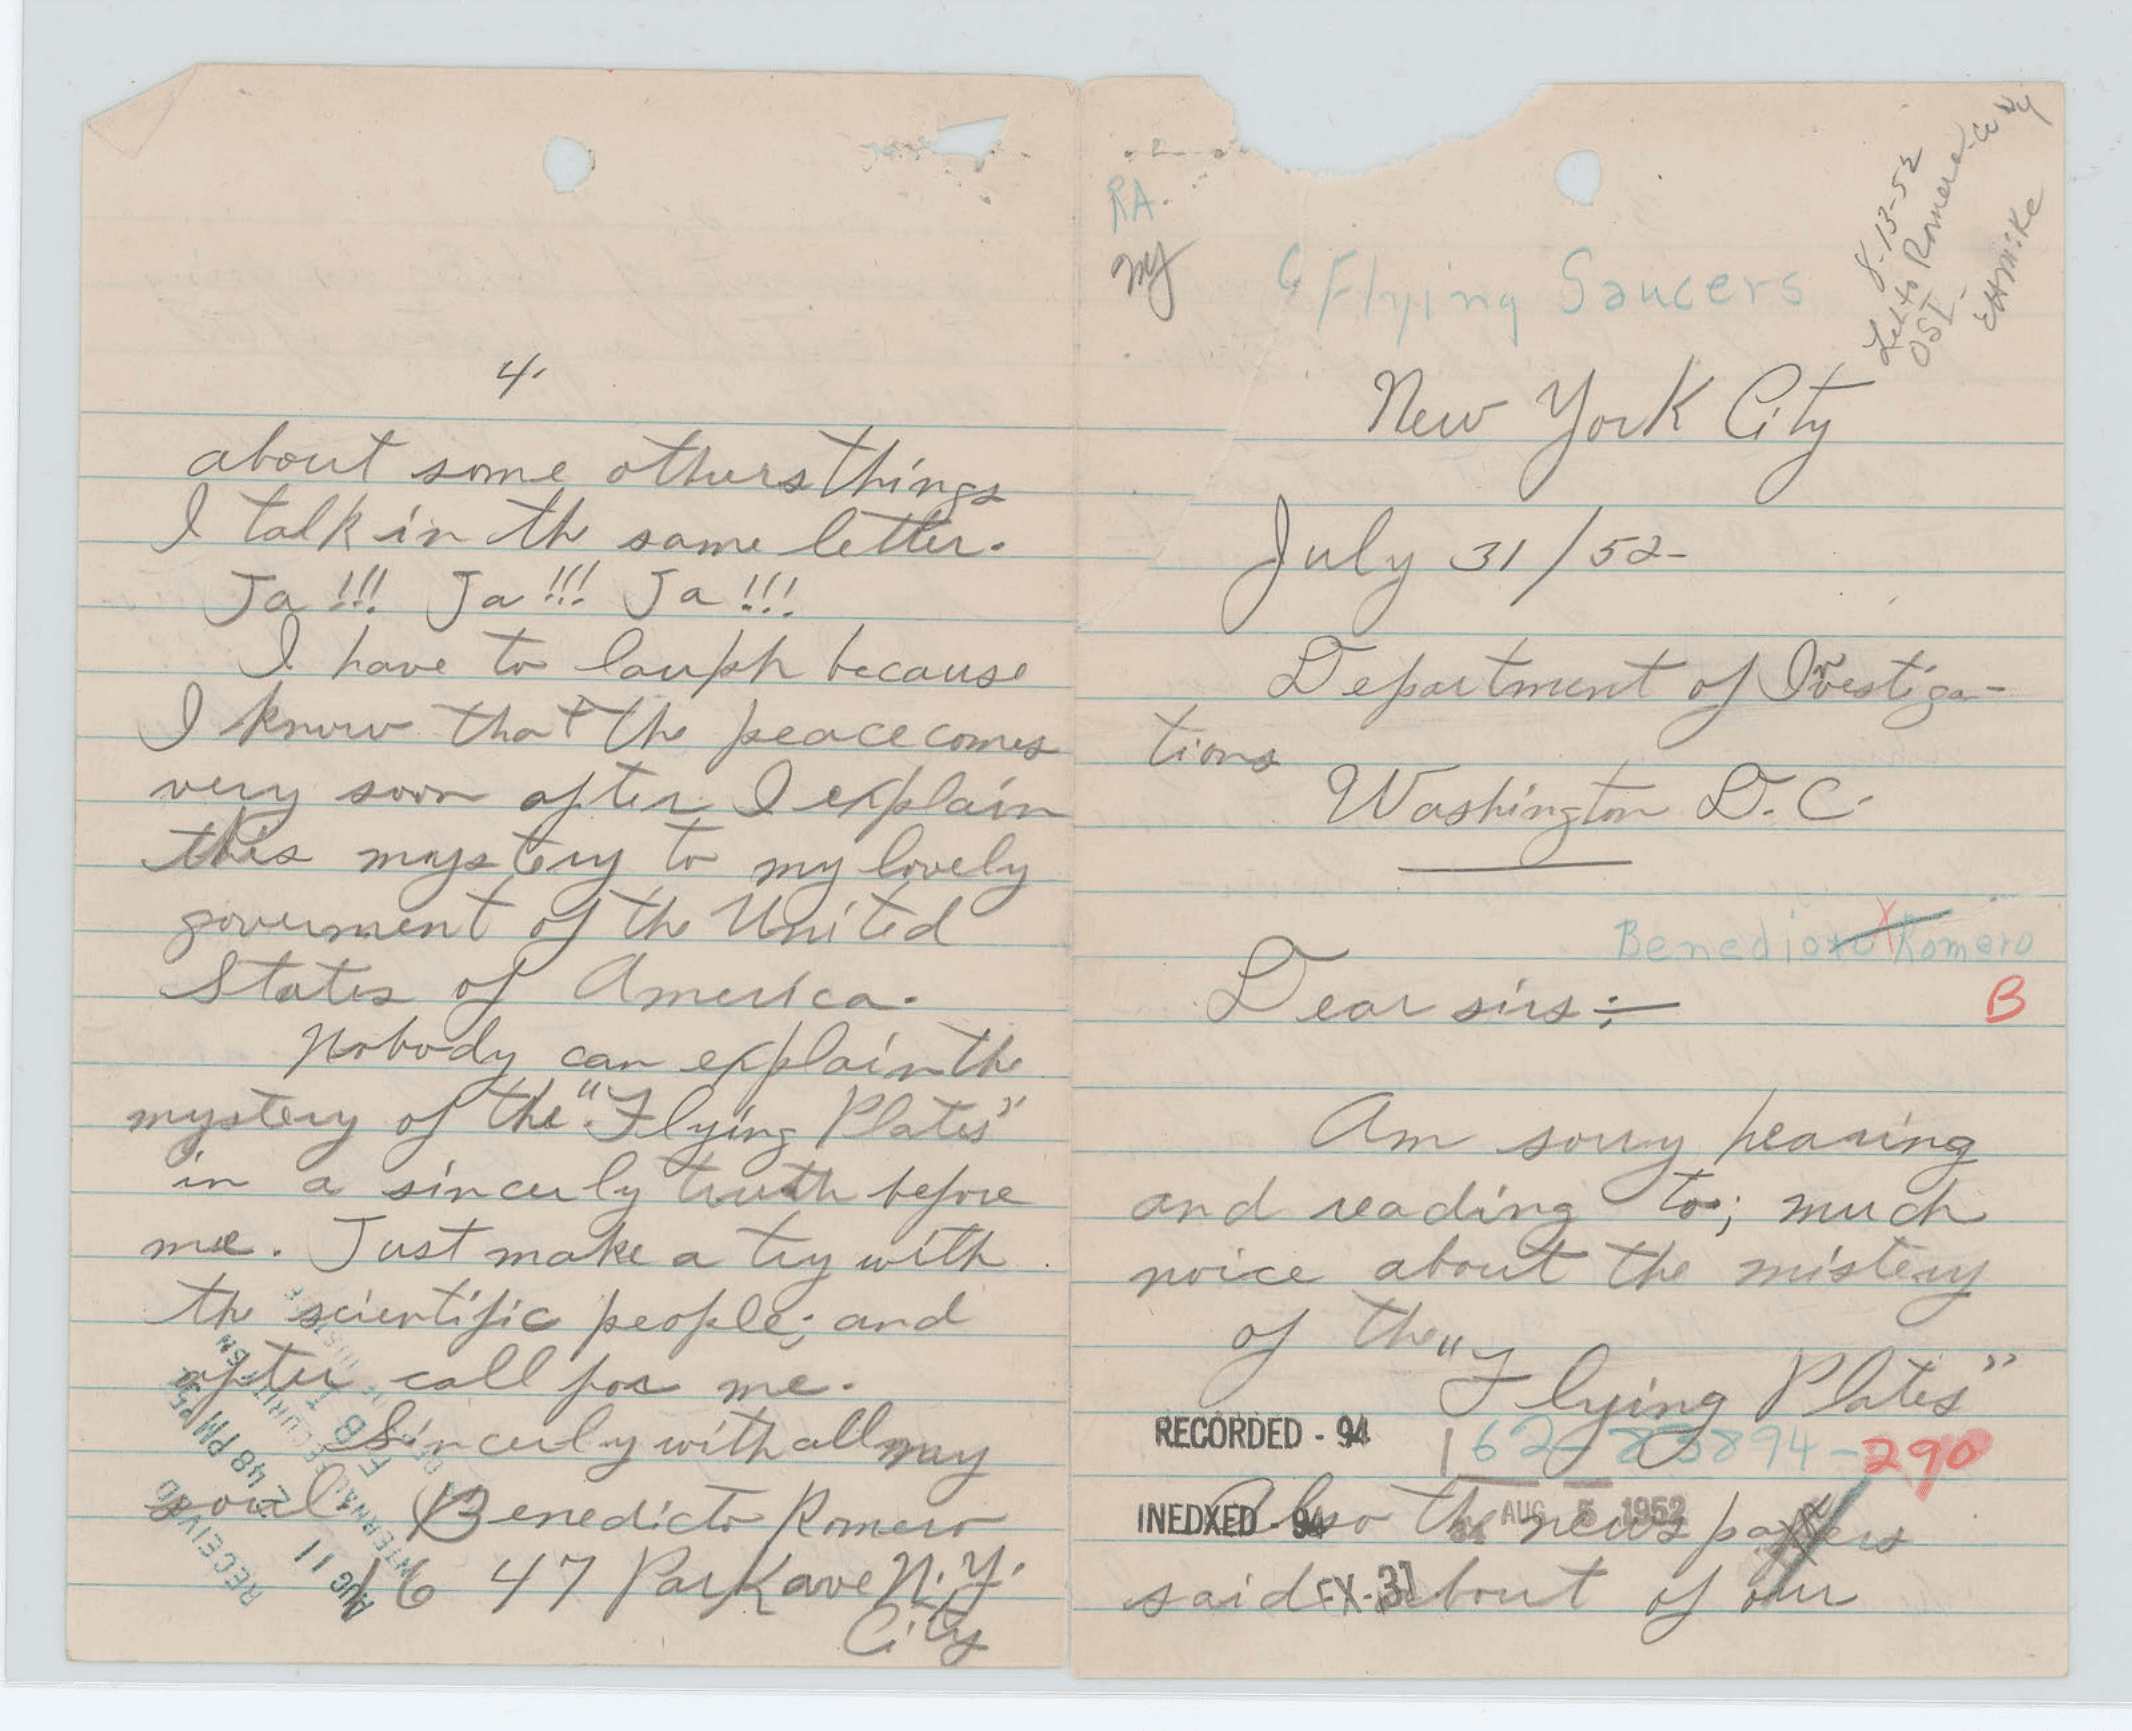 4.
about some others things
I talk in the same letter.
Ja!!! Ja!!! Ja!!!
I have to lauph because
I know that the peace comes
very soon after I explain
this mystery to my lovely
goverment of the United
States of America.
Nobody can explain the
mystery of the "Flying Plates"
in a sincerly truth before
me. Just make a try with
the scientific people; and
after call for me.
Sincerly with all my
soul Benedicto Romero
1647 Park ave N.Y.
City
RECEIVED
AUG 11 2 48 PM
F B I
RA.
NY
Flying Saucers
8-13-52
Let to Romero
OSI
New York City
July 31/52-
Department of Investiga-
tions
Washington D.C.
Benedicto Romero
B
Dear sirs:-
Am sorry hearing
and reading to; much
noice about the mistery
of the "Flying Plates"
RECORDED - 94
162-83894-290
INEDXED - 94
AUG 5 1952
Also the news papers
EX-31
said about of our